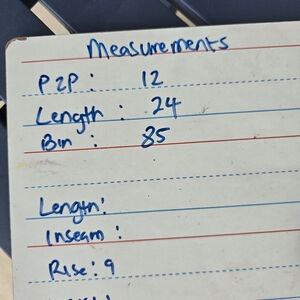 Measurements
P2P : 12
Length : 24
Bin : 85
Length:
Inseam :
Rise: 9